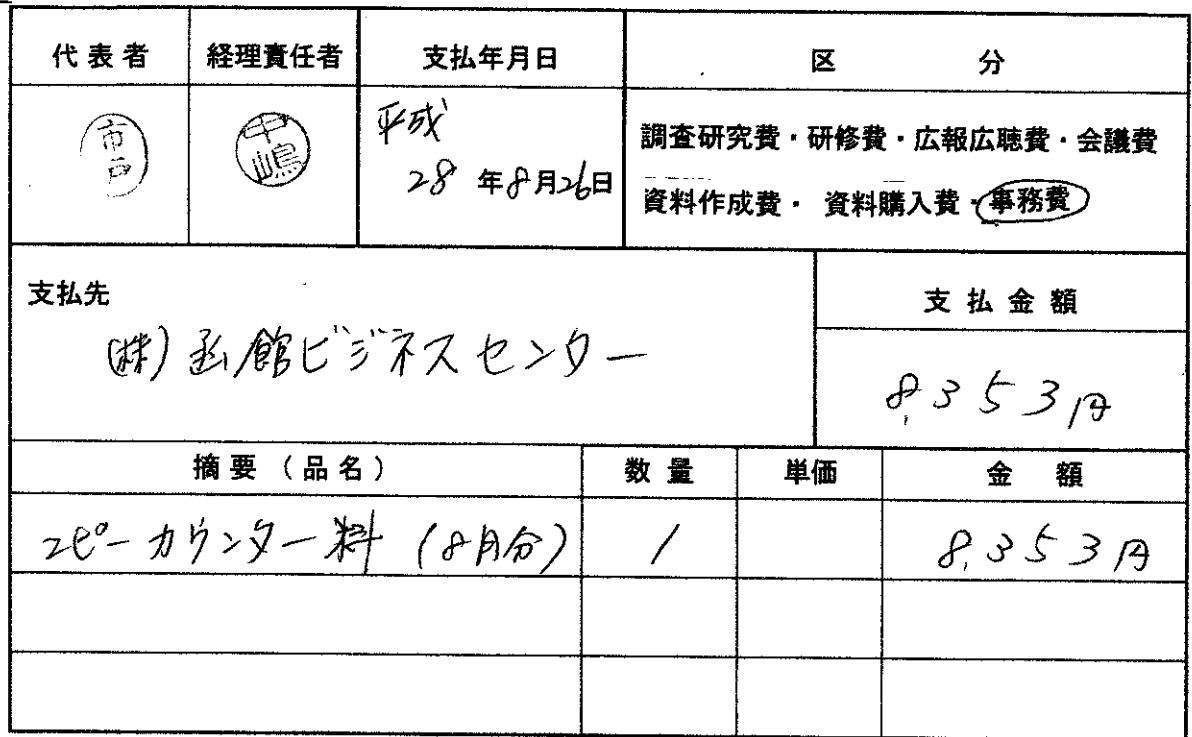 代表者 経理責任者 支払年月日 区分
市戸 中嶋 平成
28年8月26日
調査研究費・研修費・広報広聴費・会議費
資料作成費・資料購入費・事務費
支払先 支払金額
(株)函館ビジネスセンター
8,353円
摘要(品名) 数量 単価 金額
コピーカウンター料(8月分) 1 8,353円